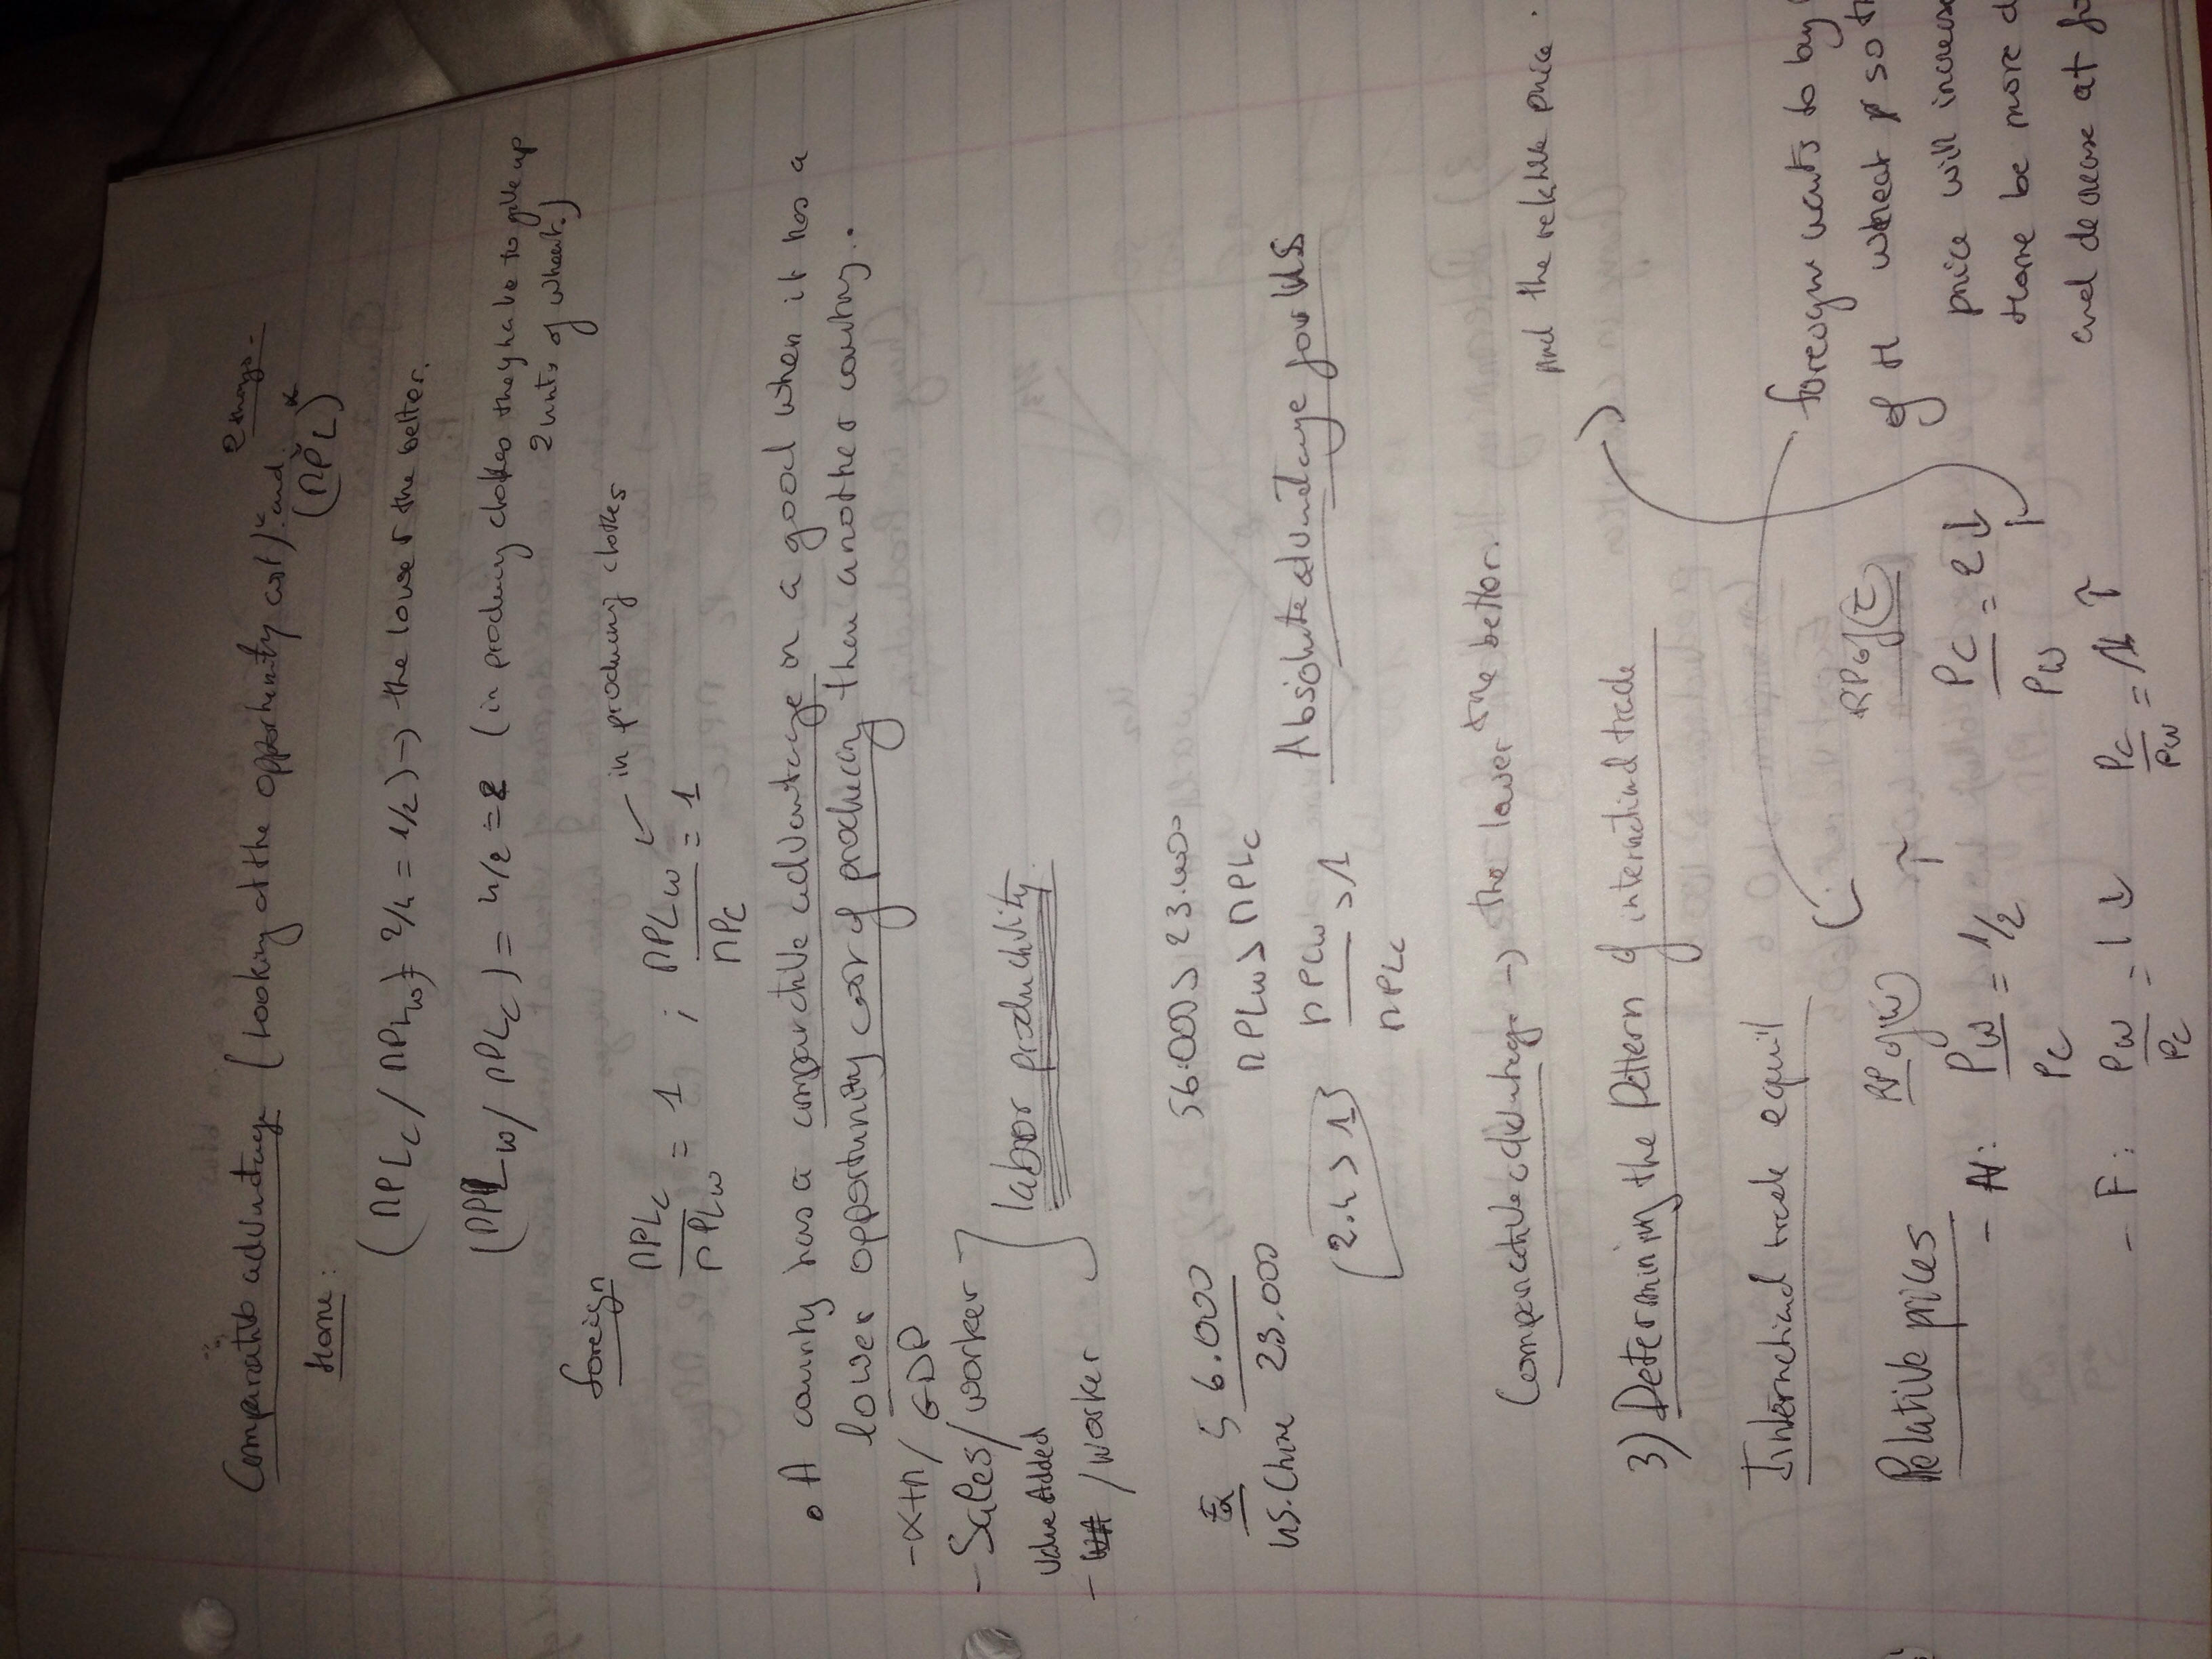 Comparative advantage (Looking at the opportunity cost)* and
2 things -
(MPL)*
Home:
(MPLc / MPLw) = 2/4 = 1/2) → the lower the better.
(MPLw / MPLc) = 4/2 = 2 (in producing clothes they have to give up
2 units of wheat.)
foreign
MPLc / MPLw = 1 ; MPLw / MPc = 1
← in producing clothes
• A country has a comparative advantage on a good when it has a
lower opportunity cost of producing then another country..
- X+M / GDP
- Sales / worker
Value Added
- / worker
labor productivity
Ex 56.000
US. China 23.000
56.000 > 23.000
MPLw > MPLc
MPLw / MPLc > 1
(2.4 > 1)
Absolute advantage for US
Comparative advantage → the lower the better.
3) Determining the Pattern of international trade
and the relative price.
International trade equil
Relative prices
RP of (w)
RP of (c)
- H: Pw / Pc = 1/2 ↑
Pc / Pw = 2 ↓
- F: Pw / Pc = 1 ↓
Pc / Pw = 1 ↑
foreign wants to buy
of H wheat so
price will increase
Home be more
and decrease at